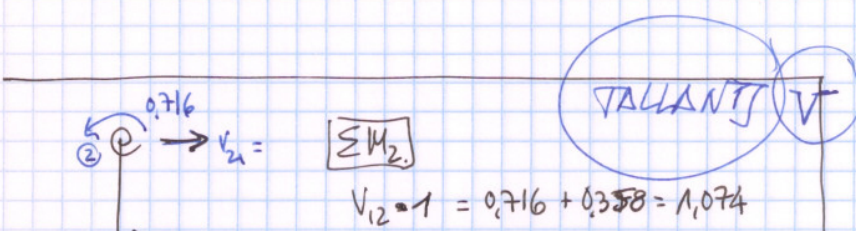 TALLANTS V
0,716
② V₂₁ = ΣM₂.
V₁₂ • 1 = 0,716 + 0,358 = 1,074